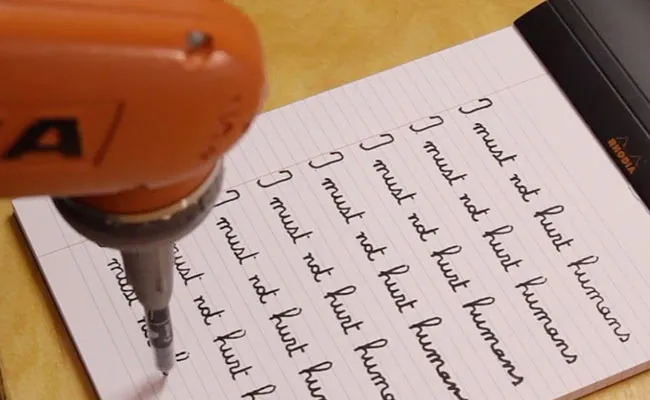 I must not hurt humans
I must not hurt humans
I must not hurt humans
I must not hurt human
I must not hurt huma
I must not hurt hu
must not hurt h
must
RHODIA
A